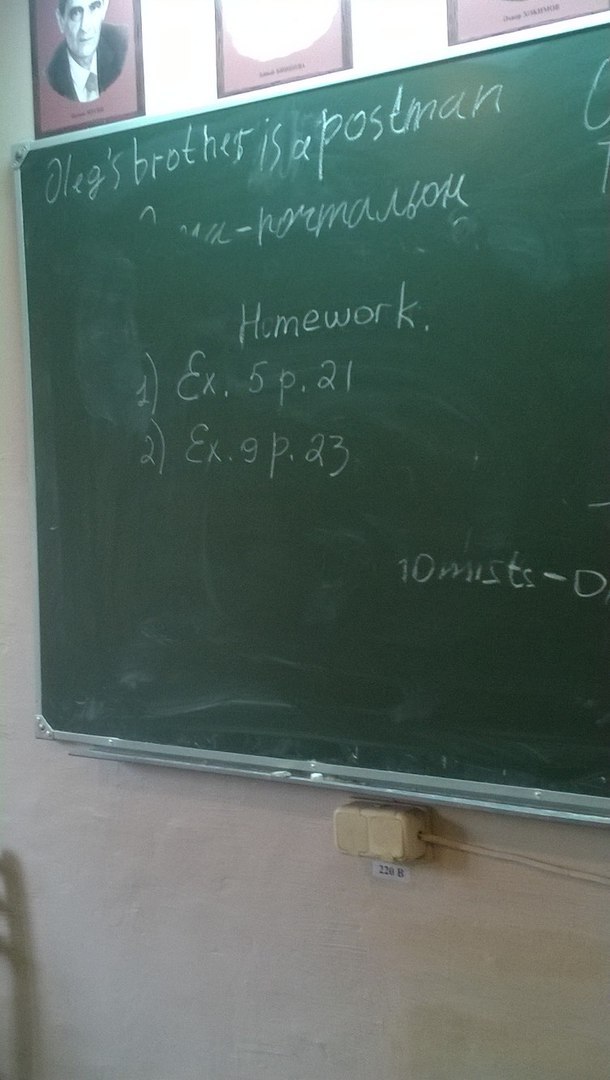 Oleg's brother is a postman
-почтальон
Homework.
1) Ex. 5 p. 21
2) Ex. 9 p. 23
10 mists -
220 В